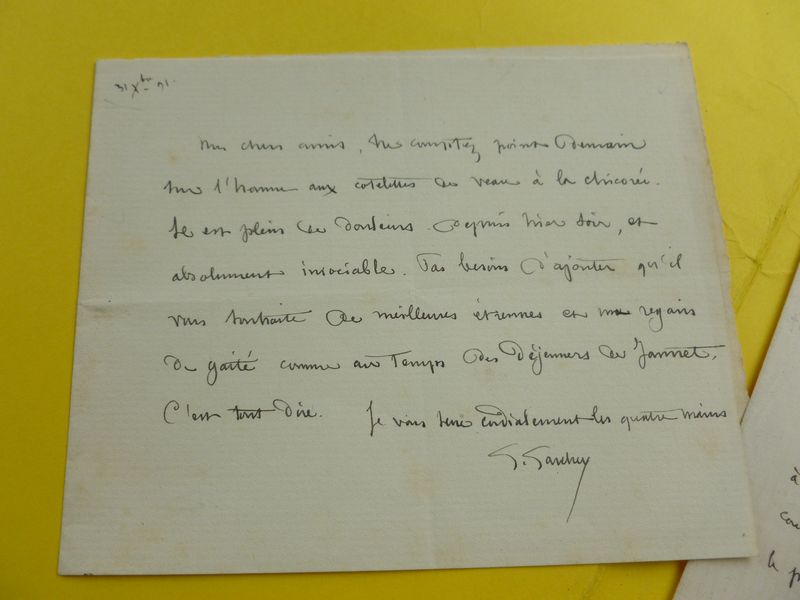 31 Xbre 91.
Mes chers amis, ne comptez point demain
sur l'homme aux cotelettes de veau à la chicorée.
Il est plein de douleurs depuis hier soir, et
absolument insociable. Pas besoin d'ajouter qu'il
vous souhaite de meilleures étrennes et un regain
de gaîté comme au temps des déjeuners de Jannet.
C'est tout dire. Je vous serre cordialement les quatre mains
à
le p